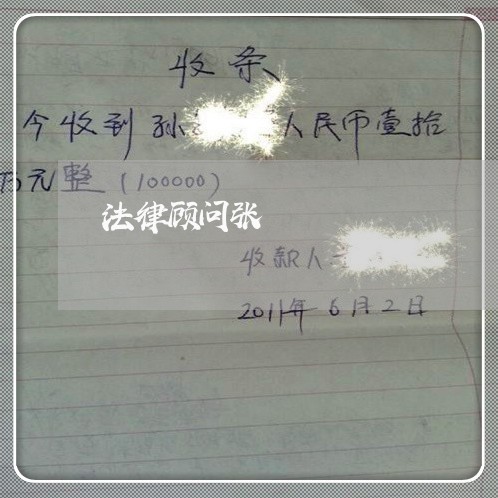 收条
今收到孙人民币壹拾
万元整(100000)
法律顾问张
收款人
2011年6月2日